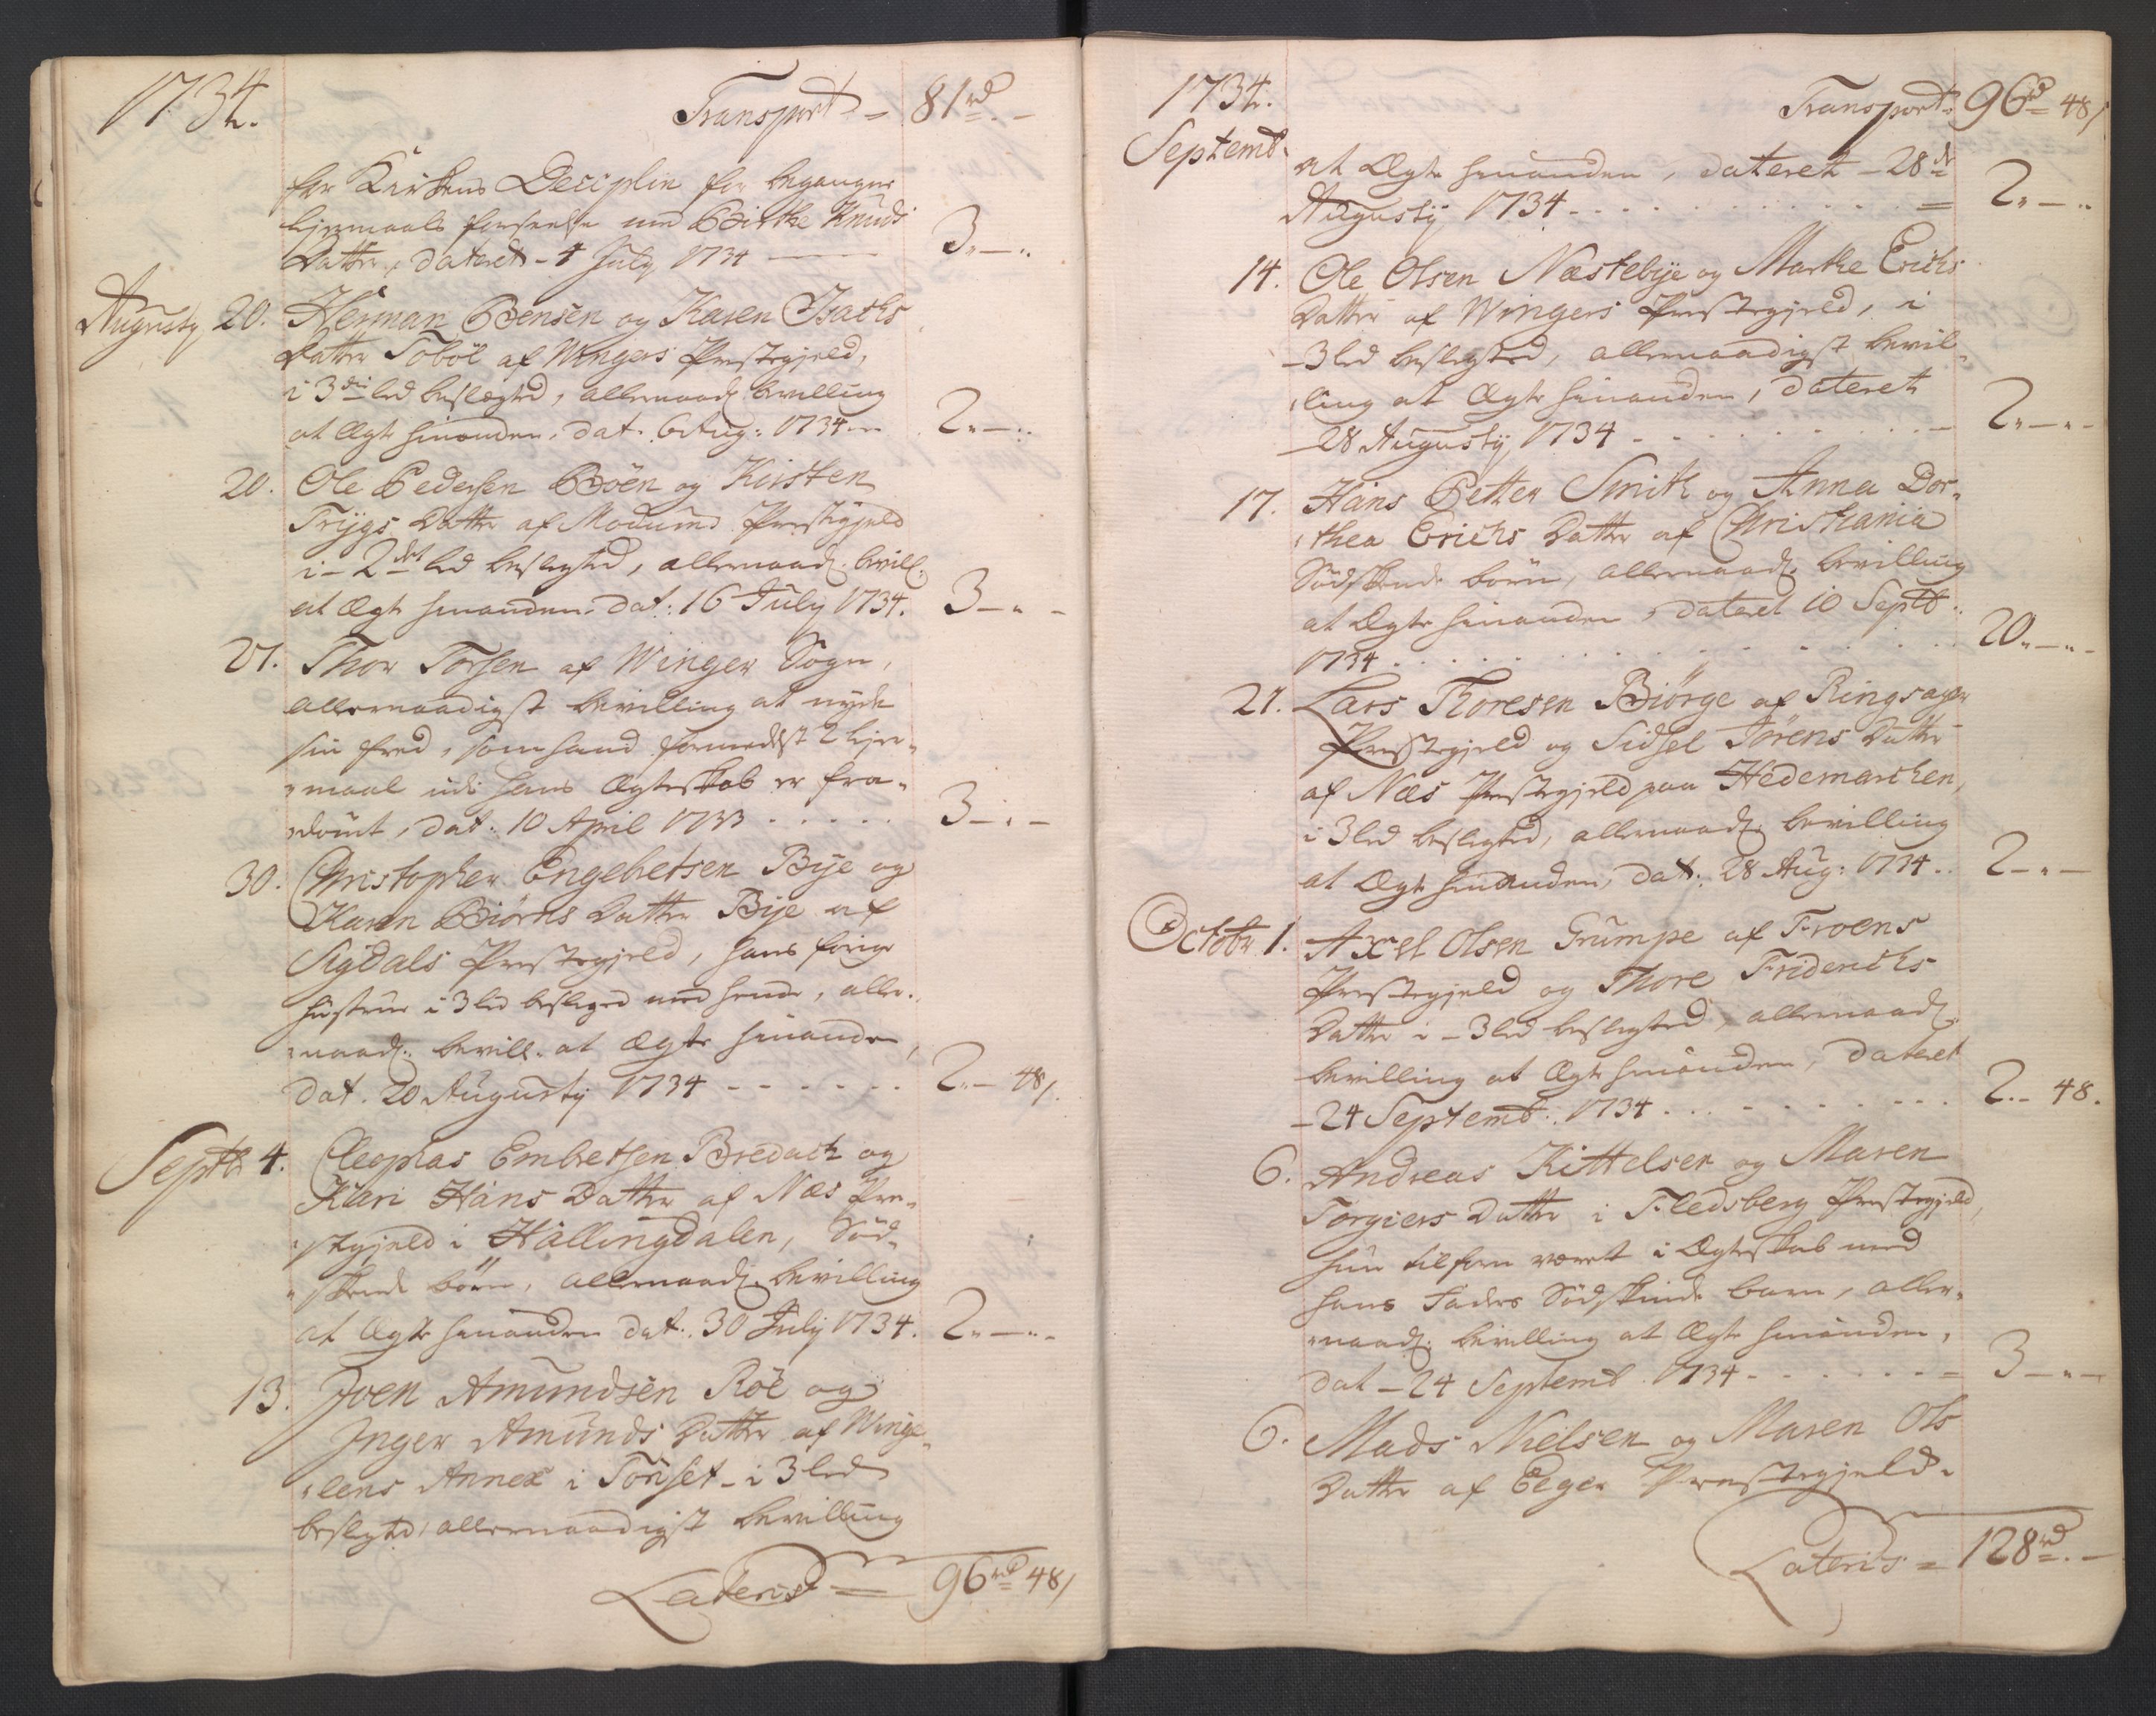 1734. Transport = 81 rd. –
for Kirkens Deciplin for begangne
lejermaals forseelse med Birthe Knuds
Datter, dateret – 4 July 1734 3 „ – „
Augusty 20. Herman Bensen og Karen Isachs
Datter Toböl af Wingers Prestegjeld,
i 3die led beslegted, allernaad: bevilling
at Ægte hinanden, dat. 6 Aug: 1734 2 „ – „
20. Ole Pedersen Böen og Kirsten
Trÿgs Datter af Modums Prestegjeld
i – 2det led beslegted, allernaad: bevill:
at Ægte hinanden. dat: 16 July 1734. 3 – „ –
27. Thor Torsen af Winger Sogn,
allernaadigst bevilling at nyde
sin fred, som hand formedelst 2 lejer„
„maal udi hans Ægteskab er fra„
„dömt, dat: 10 April 1733 3 – „ –
30. Christopher Engebetsen Bÿe og
Karen Biörns Datter Bÿe af
Sigdals Prestegjeld, hans forige
hustrue i 3 led besleged med hende, aller„
„naad: bevill. at Ægte hinanden,
dat. 20 Augusty 1734 2 „ – 48 /.
Septbr 4. Cleophas Embretsen Bredach og
Kari Hans Datter af Næs Pre„
„stegjeld i Hallingdalen, Sød„
„skende børn, allernaad: bevilling
at Ægte hinanden dat: 30 July 1734. 2 „ – „ –
13. Joen Amundsen Röe og
Inger Amunds Datter af Winge„
„lens Annex i Tönset – i 3 led
beslegted, allernaadigst bevilling
Lateris = 96 rd 48 /
1734. Transport = 96 rd 48 /
Septemb. at Ægte hinanden, dateret – 28de
Augusty 1734 2 „ – „
14. Ole Olsen Næstebÿe og Marthe Erichs
Datter af Wingers Prestegjeld, i
– 3 led beslegted, allernaadigst bevil„
„ling at Ægte hinanden, dateret
– 28 Augusty 1734 2 „ – „ –
17. Hans Petter Smith og Anna Dor„
„thea Erichs Datter af Christiania
Södskende börn, allernaad: bevilling
at Ægte hinanden, dateret 10 Septb:
1734 20 „ – „ –
27. Lars Thoresen Biörge af Ringsager
Prestegjeld og Sidsel Jörens Datter
af Næs Prestegjeld paa Hedemarchen,
i 3 led beslegted, allernaad: bevilling
at Ægte hinanden, dat: 28 Aug: 1734 2 – „ –
Octobr 1. Axel Olsen Grumpe af Froens
Prestegjeld og Thore Friderichs
Datter i – 3 led beslegted, allernaad:
bevilling at Ægte hinanden, dateret
– 24 Septemb: 1734 2 „ – 48.
6. Andreas Kittelsen og Maren
Torgiers Datter i Fledsberg Prestegjeld,
hun tilforn været i Ægteskab med
hans Faders Södskinde barn, aller„
„naad: bevilling at Ægte hinanden,
dat – 24 Septemb. 1734 3 – „ –
6. Mads Nielsen og Maren Ols
Datter af Eeger Prestegjeld.
Lateris = 128 rd. –